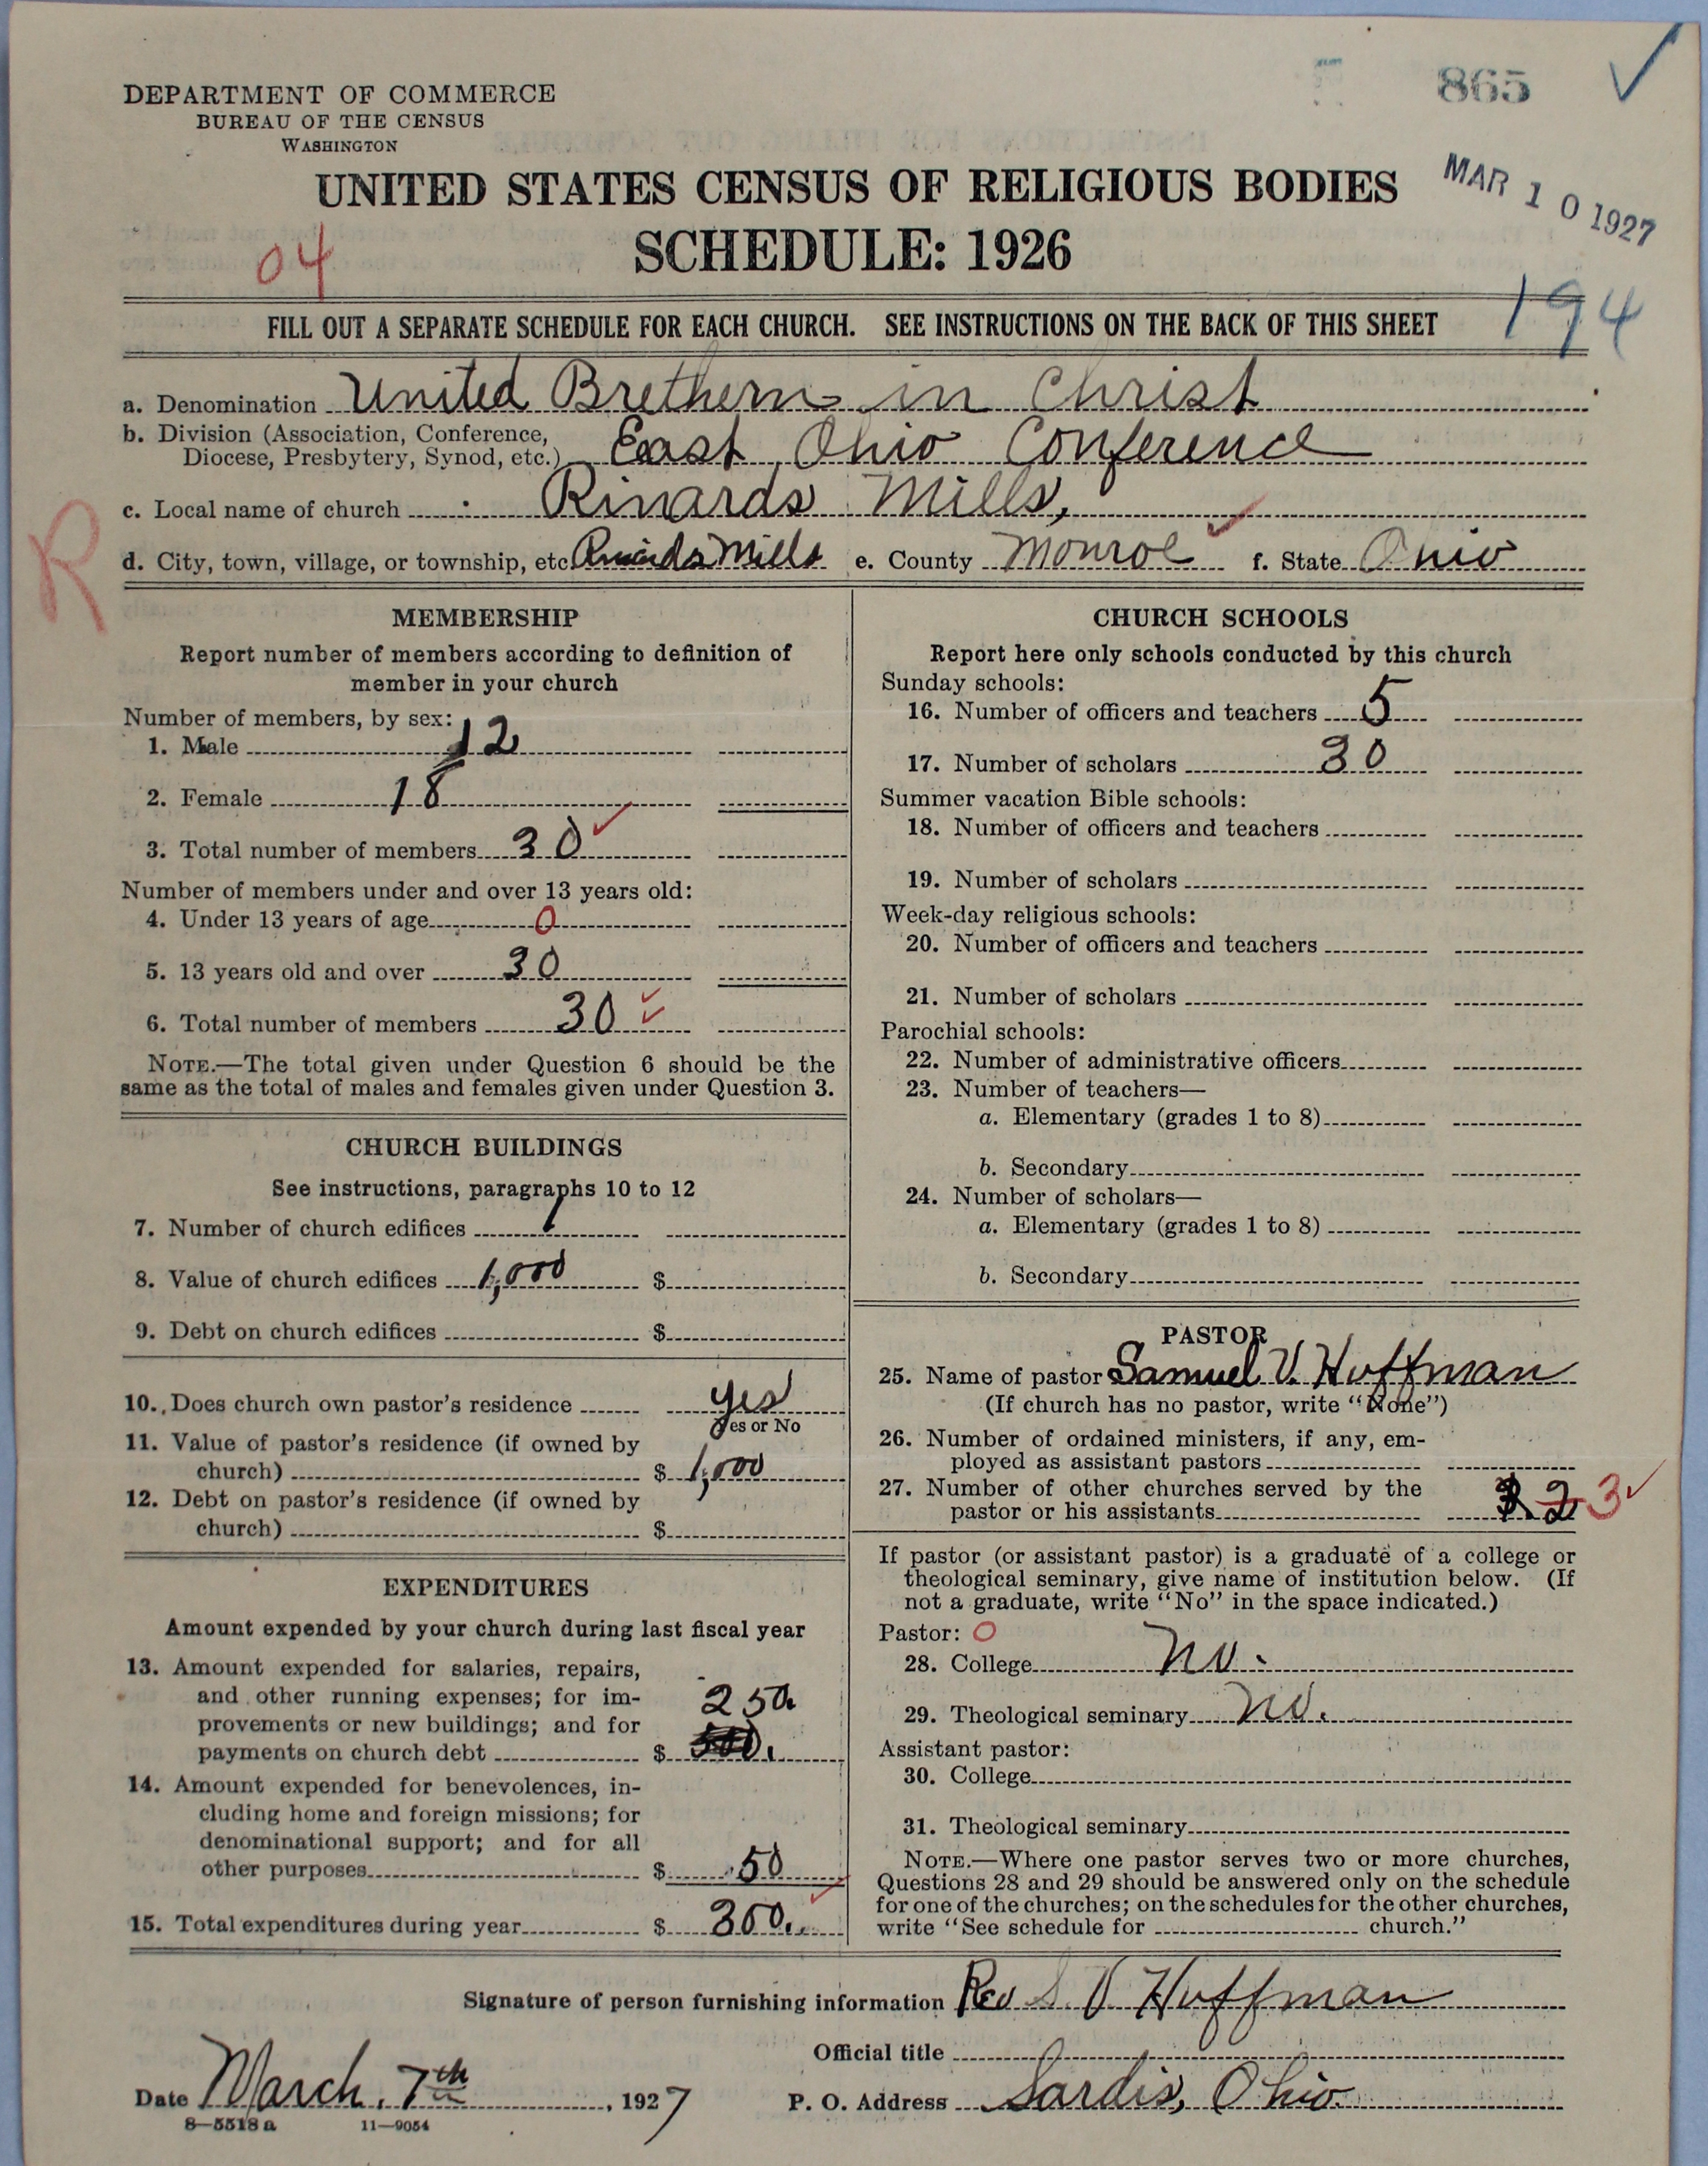 865
DEPARTMENT OF COMMERCE
BUREAU OF THE CENSUS
WASHINGTON
UNITED STATES CENSUS OF RELIGIOUS BODIES
MAR 10 1927
SCHEDULE: 1926
04
194
FILL OUT A SEPARATE SCHEDULE FOR EACH CHURCH. SEE INSTRUCTIONS ON THE BACK OF THIS SHEET
a. Denomination United Brethern in Christ
b. Division (Association, Conference,
Diocese, Presbytery, Synod, etc.) East Ohio Conference
c. Local name of church Rinards Mills,
R
d. City, town, village, or township, etc. Rinards Mills e. County Monroe f. State Ohio
MEMBERSHIP
Report number of members according to definition of
member in your church
Number of members, by sex:
1. Male 12
2. Female 18
3. Total number of members 30
Number of members under and over 13 years old:
4. Under 13 years of age 0
5. 13 years old and over 30
6. Total number of members 30
NOTE.—The total given under Question 6 should be the
same as the total of males and females given under Question 3.
CHURCH BUILDINGS
See instructions, paragraphs 10 to 12
7. Number of church edifices 1
8. Value of church edifices 1,000 $
9. Debt on church edifices $
10. Does church own pastor's residence yes
Yes or No
11. Value of pastor's residence (if owned by
church) $ 1,000
12. Debt on pastor's residence (if owned by
church) $
EXPENDITURES
Amount expended by your church during last fiscal year
13. Amount expended for salaries, repairs,
and other running expenses; for im-
provements or new buildings; and for
250
payments on church debt $
14. Amount expended for benevolences, in-
cluding home and foreign missions; for
denominational support; and for all
other purposes $ 50
15. Total expenditures during year $ 300
CHURCH SCHOOLS
Report here only schools conducted by this church
Sunday schools:
16. Number of officers and teachers 5
17. Number of scholars 30
Summer vacation Bible schools:
18. Number of officers and teachers
19. Number of scholars
Week-day religious schools:
20. Number of officers and teachers
21. Number of scholars
Parochial schools:
22. Number of administrative officers
23. Number of teachers—
a. Elementary (grades 1 to 8)
b. Secondary
24. Number of scholars—
a. Elementary (grades 1 to 8)
b. Secondary
PASTOR
25. Name of pastor Samuel V. Huffman
(If church has no pastor, write "None")
26. Number of ordained ministers, if any, em-
ployed as assistant pastors
27. Number of other churches served by the
pastor or his assistants 2 3
If pastor (or assistant pastor) is a graduate of a college or
theological seminary, give name of institution below. (If
not a graduate, write "No" in the space indicated.)
Pastor: 0
28. College no.
29. Theological seminary no.
Assistant pastor:
30. College
31. Theological seminary
NOTE.—Where one pastor serves two or more churches,
Questions 28 and 29 should be answered only on the schedule
for one of the churches; on the schedules for the other churches,
write "See schedule for church."
Signature of person furnishing information Rev S. V Huffman
Official title
Date March, 7th, 1927
P. O. Address Sardis, Ohio
8—5518 a 11—9054